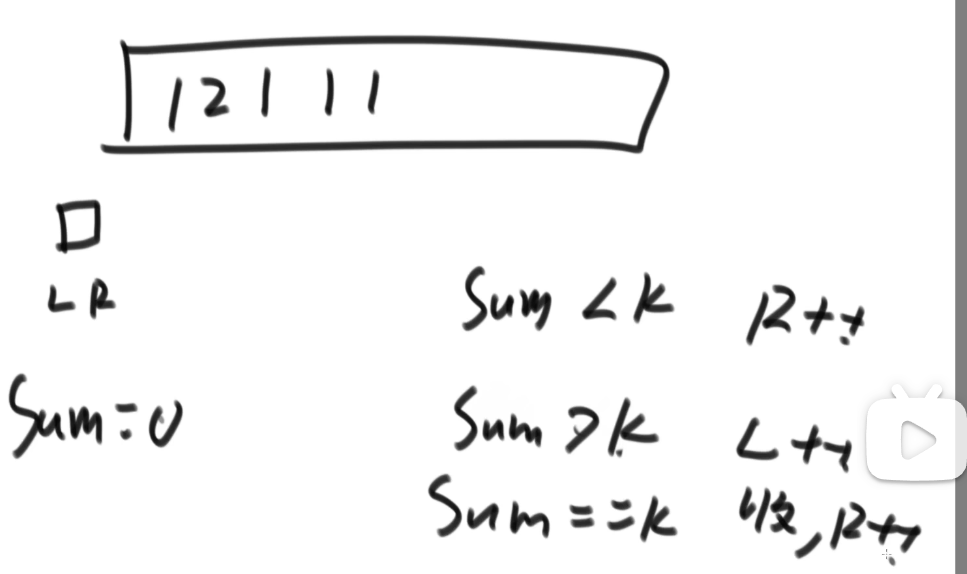 1 2 1 1 1
L R
Sum < K R++
Sum = 0
Sum > K L++
Sum == K 收, R++